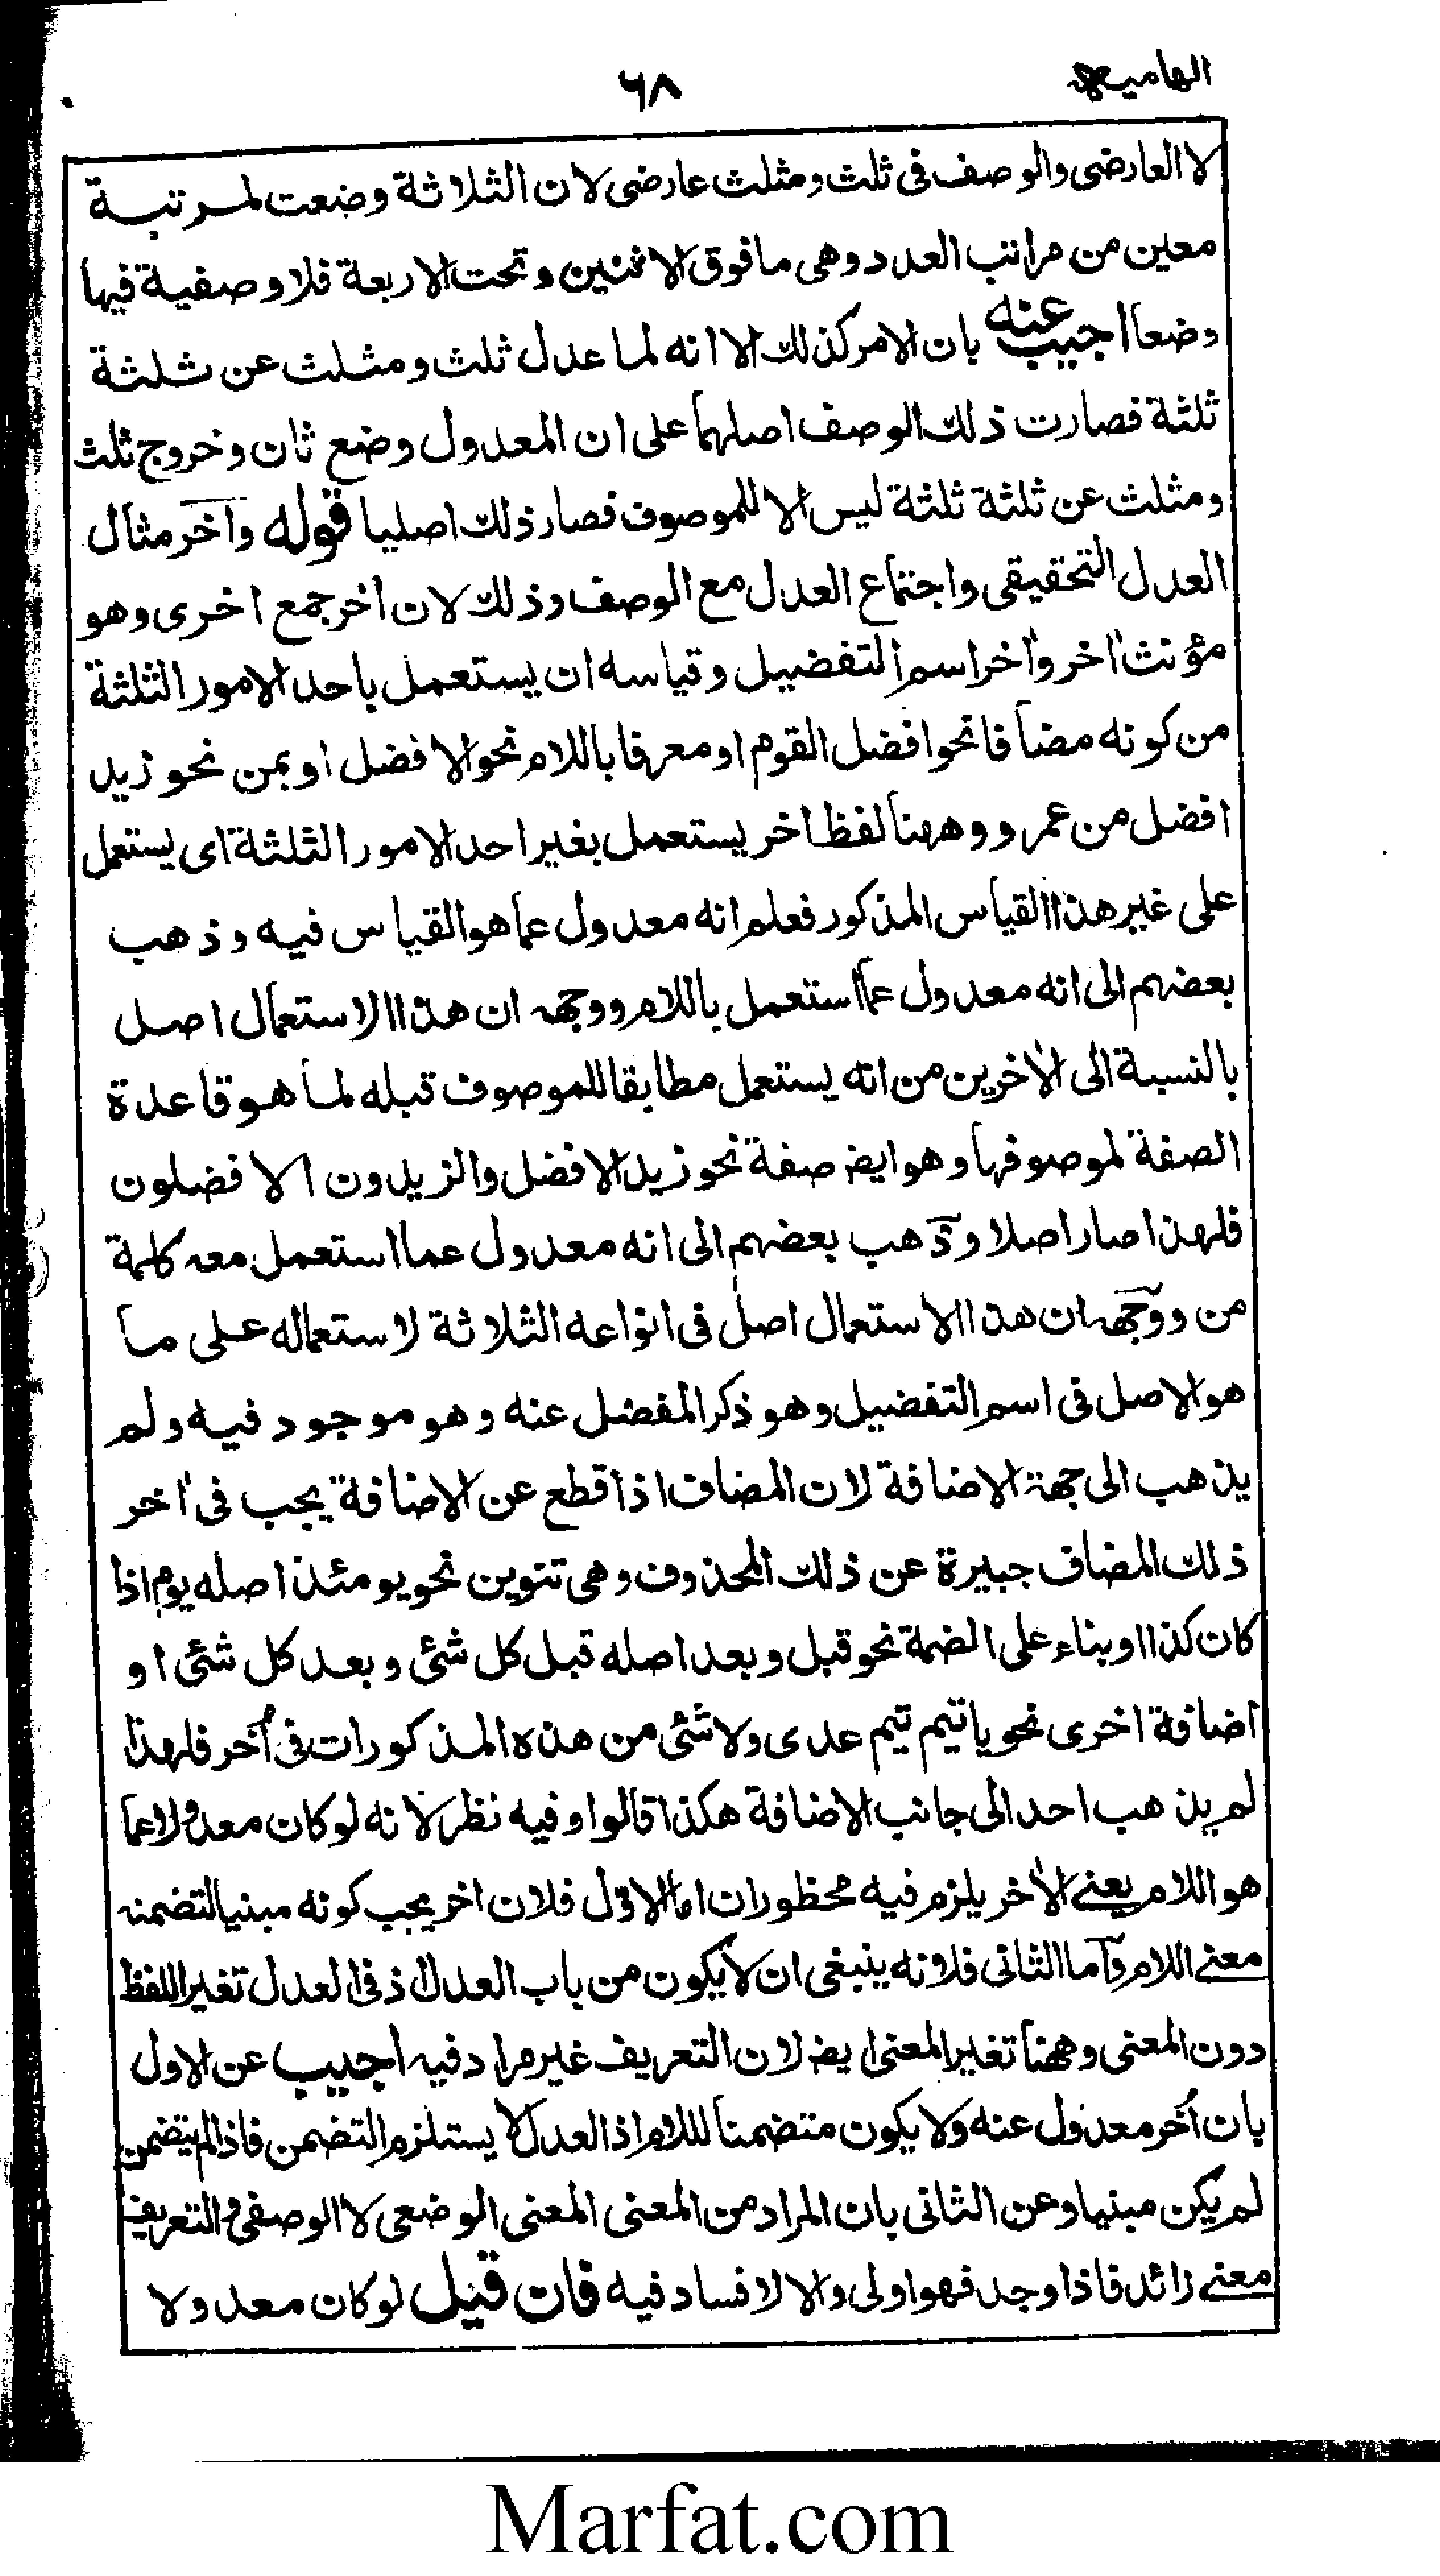 الهاميه
٦٨
لا العارضى والوصف فى ثلث ومثلث عارضى لان الثلاثة وضعت لمرتبة
معين من مراتب العدد وهى ما فوق الاثنين وتحت الاربعة فلا وصفية فيها
وضعا اجيب عنه بان الامر كذلك الا انه لما عدل ثلث ومثلث عن ثلثة
ثلثة فصارت ذلك الوصف اصلهما على ان المعدول وضع ثان وخروج ثلث
ومثلث عن ثلثة ثلثة ليس الا للموصوف فصار ذلك اصليا قوله وآخر مثال
العدل التحقيقى واجتماع العدل مع الوصف وذلك لان اخر جمع اخرى وهو
مؤنث اٰخر واٰخر اسم التفضيل وقياسه ان يستعمل باحد الامور الثلثة
من كونه مضافا نحو افضل القوم او معرفا باللام نحو الافضل او بمن نحو زيد
افضل من عمرو وههنا لفظ اخر يستعمل بغير احد الامور الثلثة اى يستعمل
على غير هذا القياس المذكور فعلم انه معدول عما هو القياس فيه وذهب
بعضهم الى انه معدول عما استعمل باللام ووجهه ان هذا الاستعمال اصل
بالنسبة الى الاٰخرين من انه يستعمل مطابقا للموصوف قبله لما هو قاعدة
الصفة لموصوفها وهو ايض صفة نحو زيد الافضل والزيدون الافضلون
فلهذا صار اصلا وذهب بعضهم الى انه معدول عما استعمل معه كلمة
من ووجهه ان هذا الاستعمال اصل فى انواعه الثلاثة لاستعماله على ما
هو الاصل فى اسم التفضيل وهو ذكر المفضل عنه وهو موجود فيه ولم
يذهب الى جهة الاضافة لان المضاف اذا قطع عن الاضافة يجب فى اٰخر
ذلك المضاف جبيرة عن ذلك المحذوف وهى تنوين نحو يومئذ اصله يوم اذا
كان كذا او بناء على الضمة نحو قبل وبعد اصله قبل كل شئى وبعد كل شئى او
اضافة اخرى نحو يا تيم تيم عدى ولا شئى من هذه المذكورات فى اُخر فلهذا
لم يذهب احد الى جانب الاضافة هكذا قالوا وفيه نظر لانه لو كان معدولا عما
هو اللام يعنے الاٰخر يلزم فيه محظوران اما الاوّل فلان اخر يجب كونه مبنيا لتضمنه
معنے اللام وآما الثانى فلانه ينبغى ان لا يكون من باب العدل اذ فى العدل تغير اللفظ
دون المعنى وههنا تغير المعنى ايض لان التعريف غير مراد فيه اجيب عن الاول
بان اُخر معدول عنه ولا يكون متضمنا لللام اذ العدل لا يستلزم التضمن فاذا لم يتضمن
لم يكن مبنيا وعن الثانى بان المراد من المعنى المعنى الوضعى لا الوصفى والتعريف
معنے زائد فاذا وجد فهو اولى والا لا فساد فيه فان قيل لو كان معدولا
Marfat.com